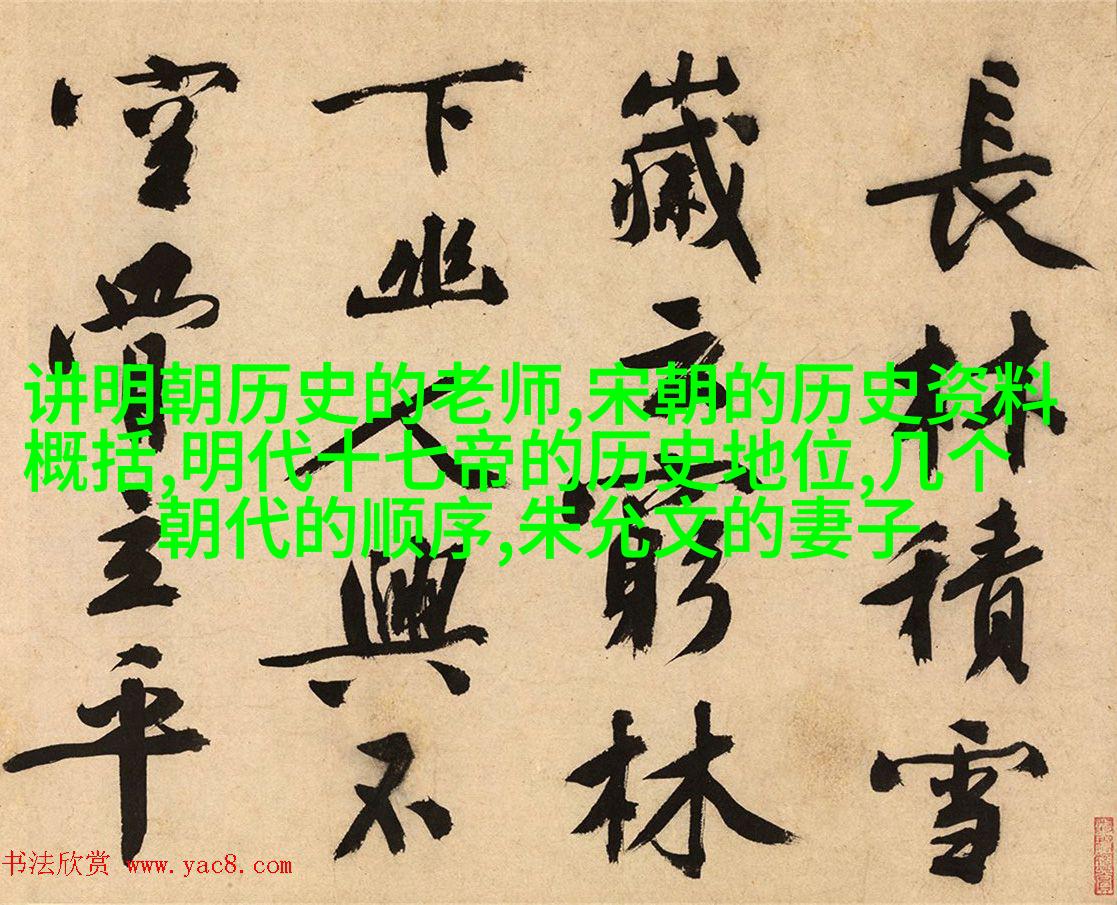 長林積雪
歲云窮林
下幽人興不
空骨立平
讲明朝历史的老师,宋朝的历史资料
概括,明代十七帝的历史地位,几个
朝代的顺序,朱允文的妻子
书法欣赏 www.yac8.com